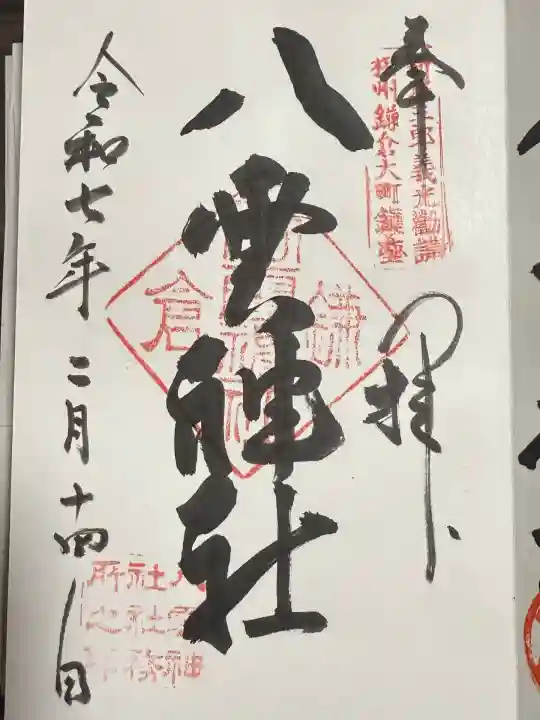 奉拝
新羅三郎義光勧請
相州鎌倉大町鎮座
八雲神社
鎌倉
令和七年二月十四日
八雲神
社社務
所之印